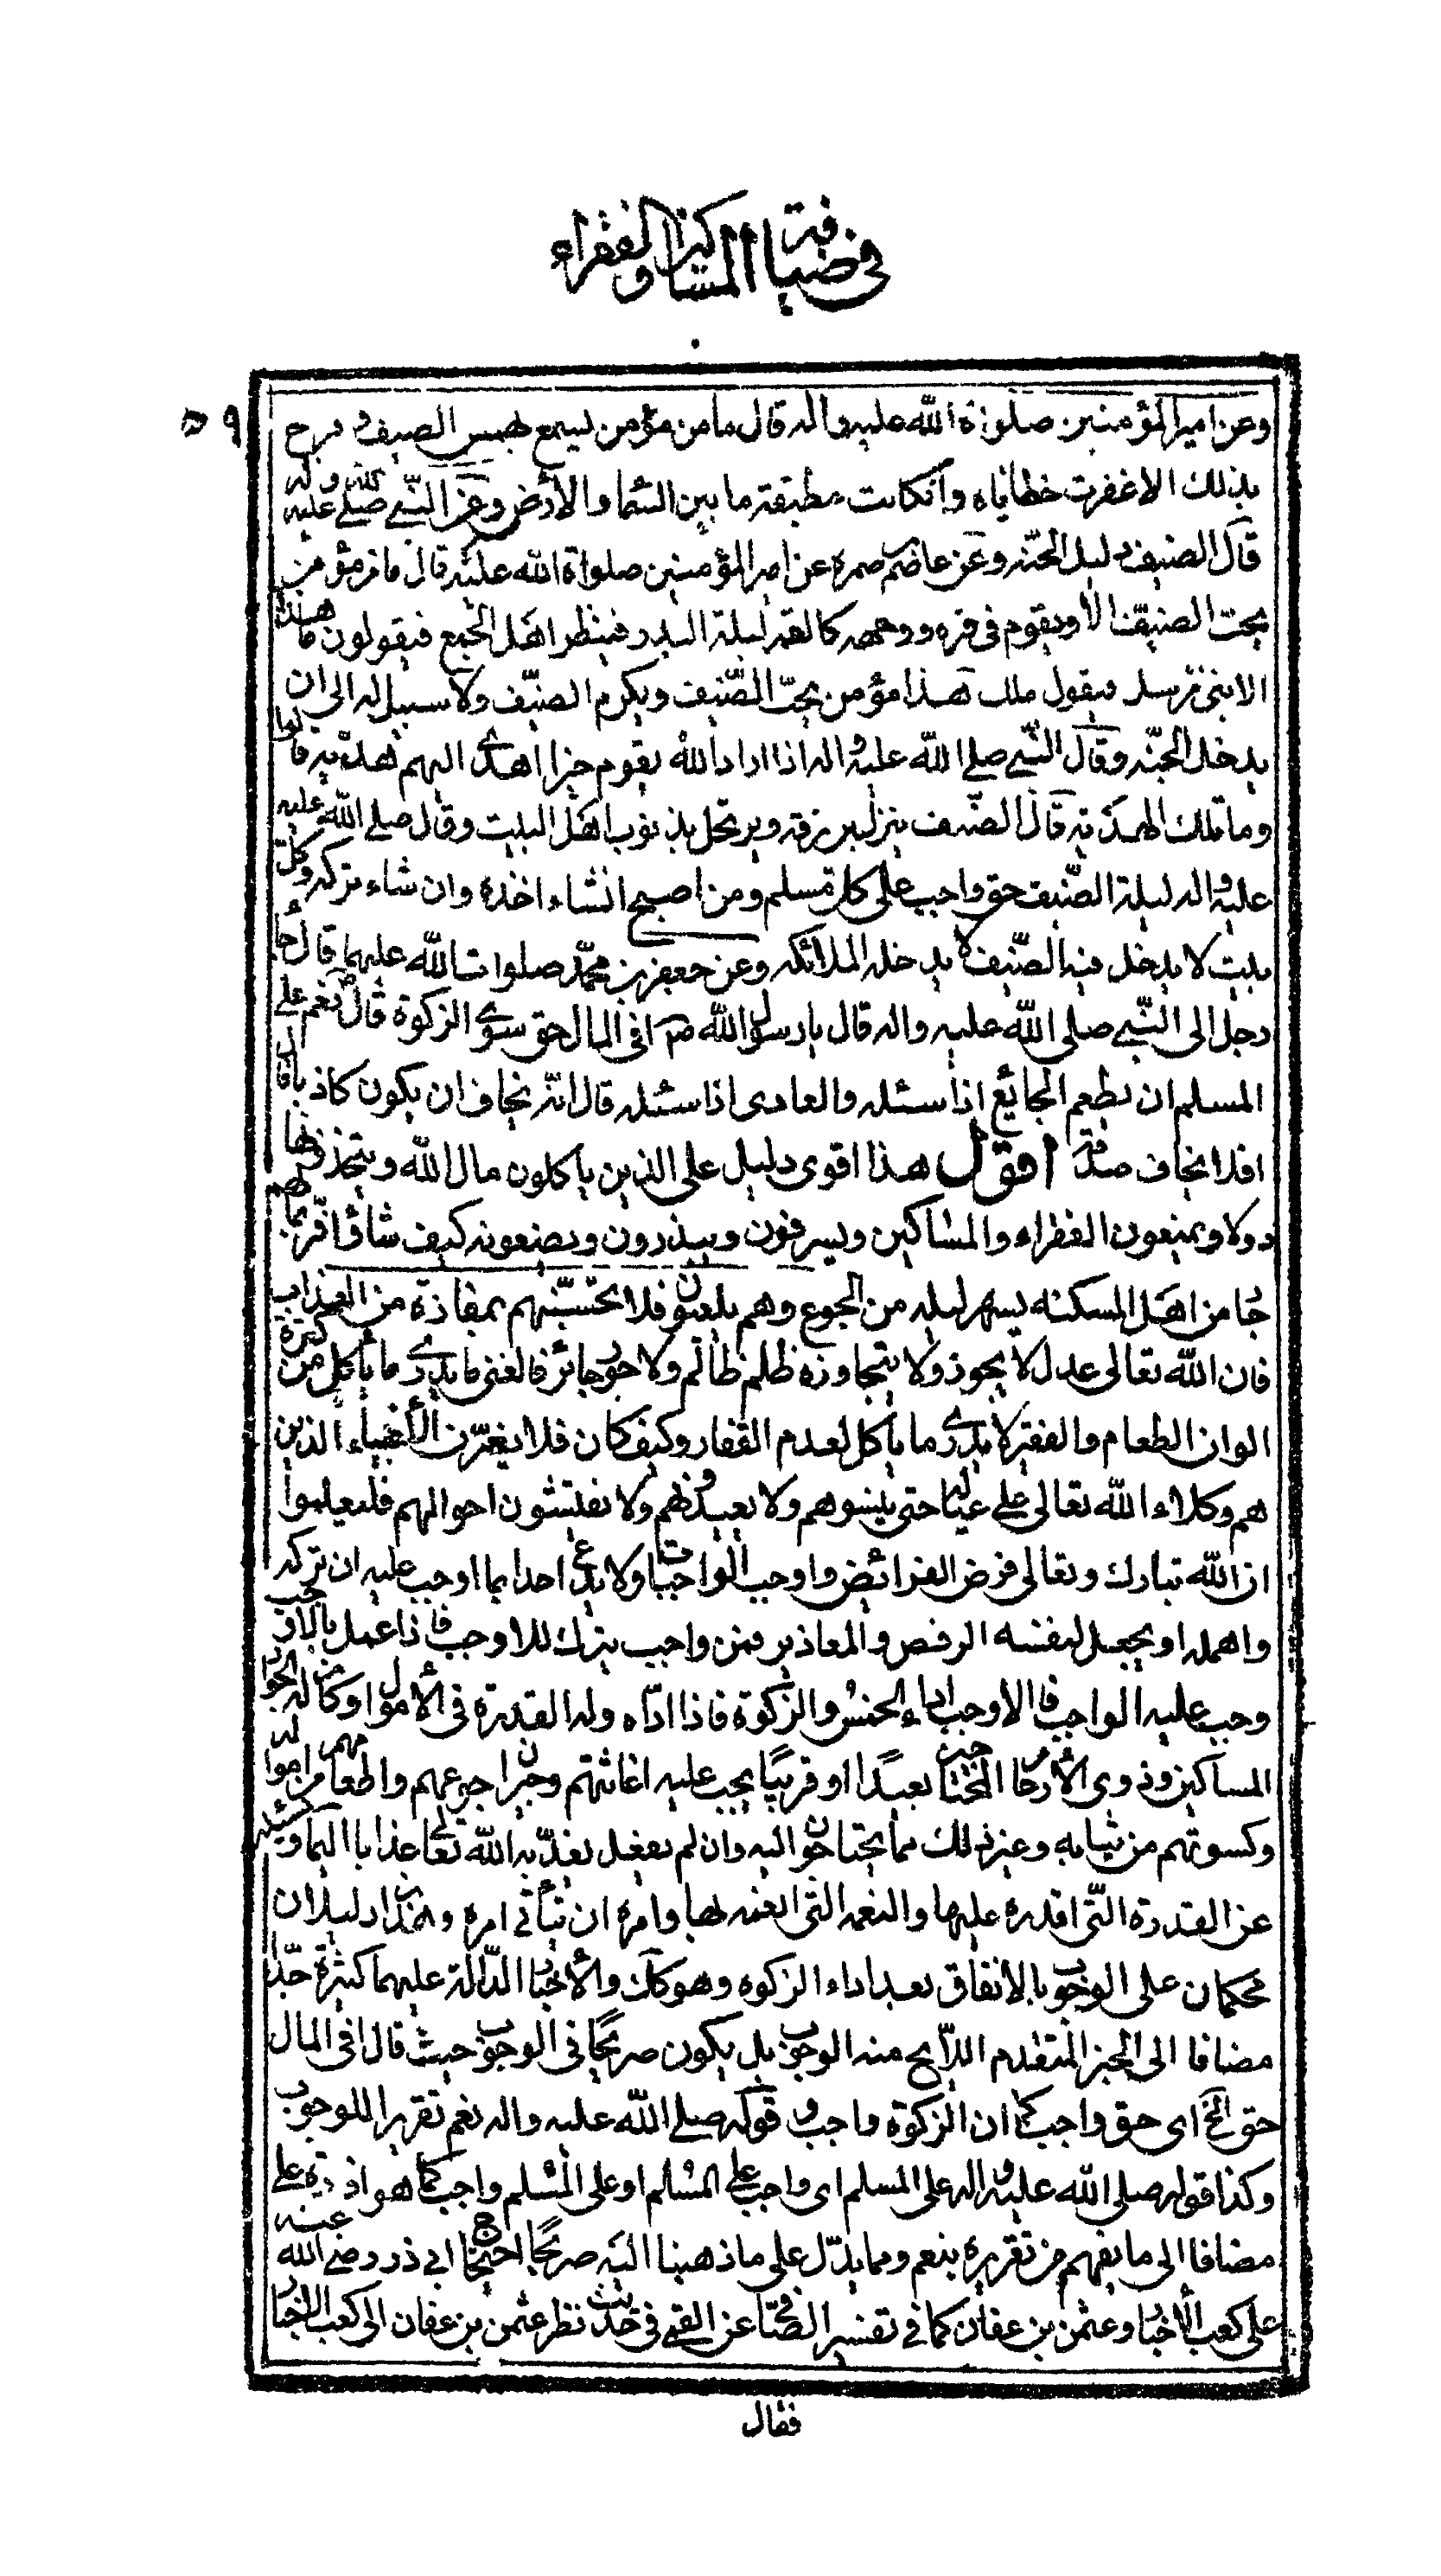 في ضيافة المساكين والفقراء
٥٩
وعن امير المؤمنين صلوٰة الله عليه واله قال ما من مؤمن ليسمع بهمس الضيف وفرح
بذلك الا غفرت خطاياه وانكانت مطبقة ما بين السّما والارض وعن النّبي صلّى الله عليه واله
قال الضيف دليل الجنّه وعن عاصم بن ضمره عن امير المؤمنين صلواة الله عليه قال ما من مؤمن
يحبّ الضيف الا ويقوم في قبره ووجهه كالقمر ليلة البدر فينظر اهل الجمع فيقولون ما هذا
الا نبي مرسل فيقول ملك هذا مؤمن يحبّ الضّيف ويكرم الضيّف ولا سبيل له الى ان
يدخل الجنّه وقال النّبي صلى الله عليه واله اذا اراد الله بقوم خيرا اهدى اليهم هديّه قالوا
وما تلك الهديّة قال الضّيف ينزل برزقه ويرتحل بذنوب اهل البيت وقال صلى الله عليه
عليه واله ليلة الضّيف حق واجب على كل مسلم ومن اصبح انشاء اخذه وان شاء تركه وكلّ
بيت لا يدخل فيه الضّيف لا يدخله الملائكه وعن جعفر بن محمّد صلوات الله عليهما قال جاء
رجل الى النّبي صلى الله عليه واله قال يا رسول الله ص افي المال حق سوى الزكوة قال نعم على
المسلم ان يطعم الجائع اذا سئله والعاري اذا سئله قال انّه يخاف ان يكون كاذبا قال
افلا يخاف صدقه اقول هذا اقوى دليل على الذين ياكلون مال الله ويتخذونها
دولا ويمنعون الفقراء والمساكين ويسرفون ويبذرون ويصنعونه كيف شاؤا فربّما لهم
جا من اهل المسكنه يسهر ليله من الجوع وهم يلعبون فلا تحسبنّهم بمفازة من العذاب
فان الله تعالى عدل لا يجوز ولا يتجاوزه ظلم ظالم ولا جور جائر فالغني ما يدري ما يأكل من كثرة
الوان الطعام والفقير لا يدري ما يأكل لعدم القفار وكيف كان فلا يغرّن الأغنياء الذين
هم وكلاء الله تعالى على عياله حتى ينسوهم ولا يعيدونهم ولا يفتشون احوالهم فليعلموا
ان الله تبارك وتعالى فرض الفرائض واوجب الواجبات ولا يدع احدا بما اوجب عليه ان تركه
واهمله او يجعل لنفسه الرخص والمعاذير فمن واجب يترك للاوجب فاذا عمل بالاوجب
وجب عليه الواجب فالاوجب اداء الخمس والزكوة فاذا ادّاه وله القدرة في الأموال وكان له من الجوار
المساكين وذوي الأرحام المحتاجين بعيدًا او قريبًا يجب عليه اغاثتهم وجبران جوعهم واطعامهم من امواله
وكسوتهم من ثيابه وغير ذلك مما يحتاجون اليه وان لم يفعل يعذّبه الله تعالى عذابا اليما ويسئله
عن القدرة التّي اقدره عليها والنعمه التّي انعمه لها وامره ان يتأنّى امره وهذان دليلان
محكمان على الوجوب بالأنفاق بعد اداء الزكوه وهو كك والأخبار الدّالة عليهما كثيرة جدّا
مضافا الى الخبر المتقدم اللاّيح منه الوجوب بل يكون صريحًا في الوجوب حيث قال افي المال
حق الخ اى حق واجب كما ان الزكوة واجب وقوله صلى الله عليه واله نعم تقريرا للوجوب
وكذا قوله صلى الله عليه واله على المسلم اى واجب على المسلم او على المسلم واجب كما هو اذ على
مضافا الى ما يفهم من تقريره بنعم ومما يدّل على ما ذهبنا اليه صريحًا احتجاج ابي ذر رضى الله عنه
على كعب الأخبار وعثمن بن عفان كما في تفسير الصّافي عن القمي في حديث نظر عثمن بن عفان الى كعب الاخبار
فقال